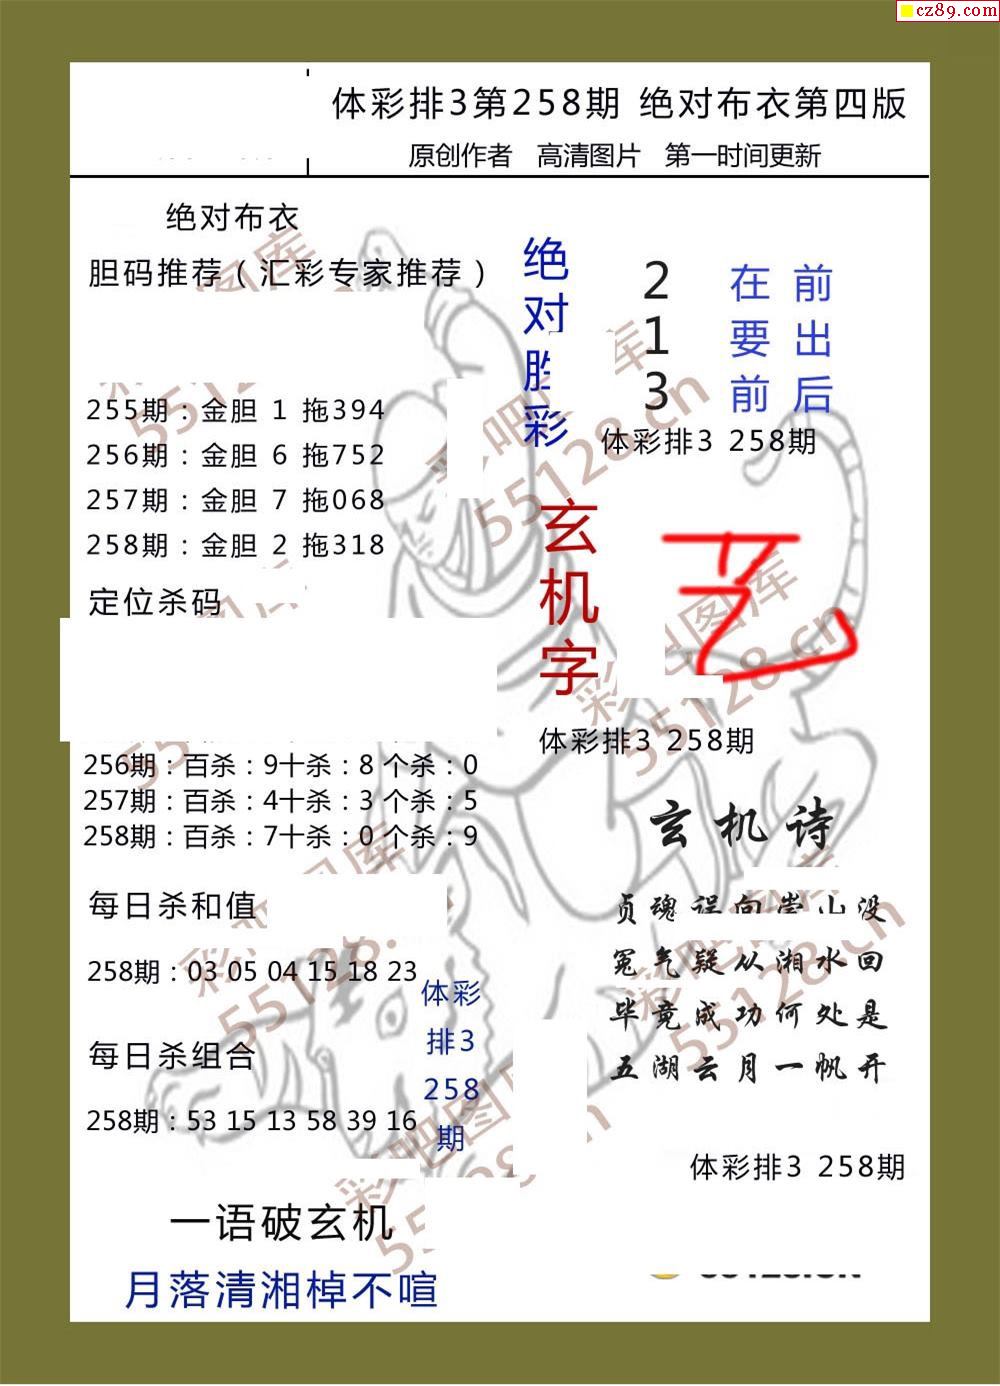 cz89.com
体彩排3第258期 绝对布衣第四版
原创作者 高清图片 第一时间更新
绝对布衣
胆码推荐（汇彩专家推荐）
255期：金胆 1 拖394
256期：金胆 6 拖752
257期：金胆 7 拖068
258期：金胆 2 拖318
定位杀码
256期：百杀：9十杀：8 个杀：0
257期：百杀：4十杀：3 个杀：5
258期：百杀：7十杀：0 个杀：9
每日杀和值
258期：03 05 04 15 18 23
每日杀组合
258期：53 15 13 58 39 16
体彩
排3
258
期
一语破玄机
月落清湘棹不喧
绝对胜彩
2 在 前
1 要 出
3 前 后
体彩排3 258期
玄机字
体彩排3 258期
玄机诗
贞魂误向崇山没
冤气疑从湘水回
毕竟成功何处是
五湖云月一帆开
体彩排3 258期
彩吧图库
55128.cn